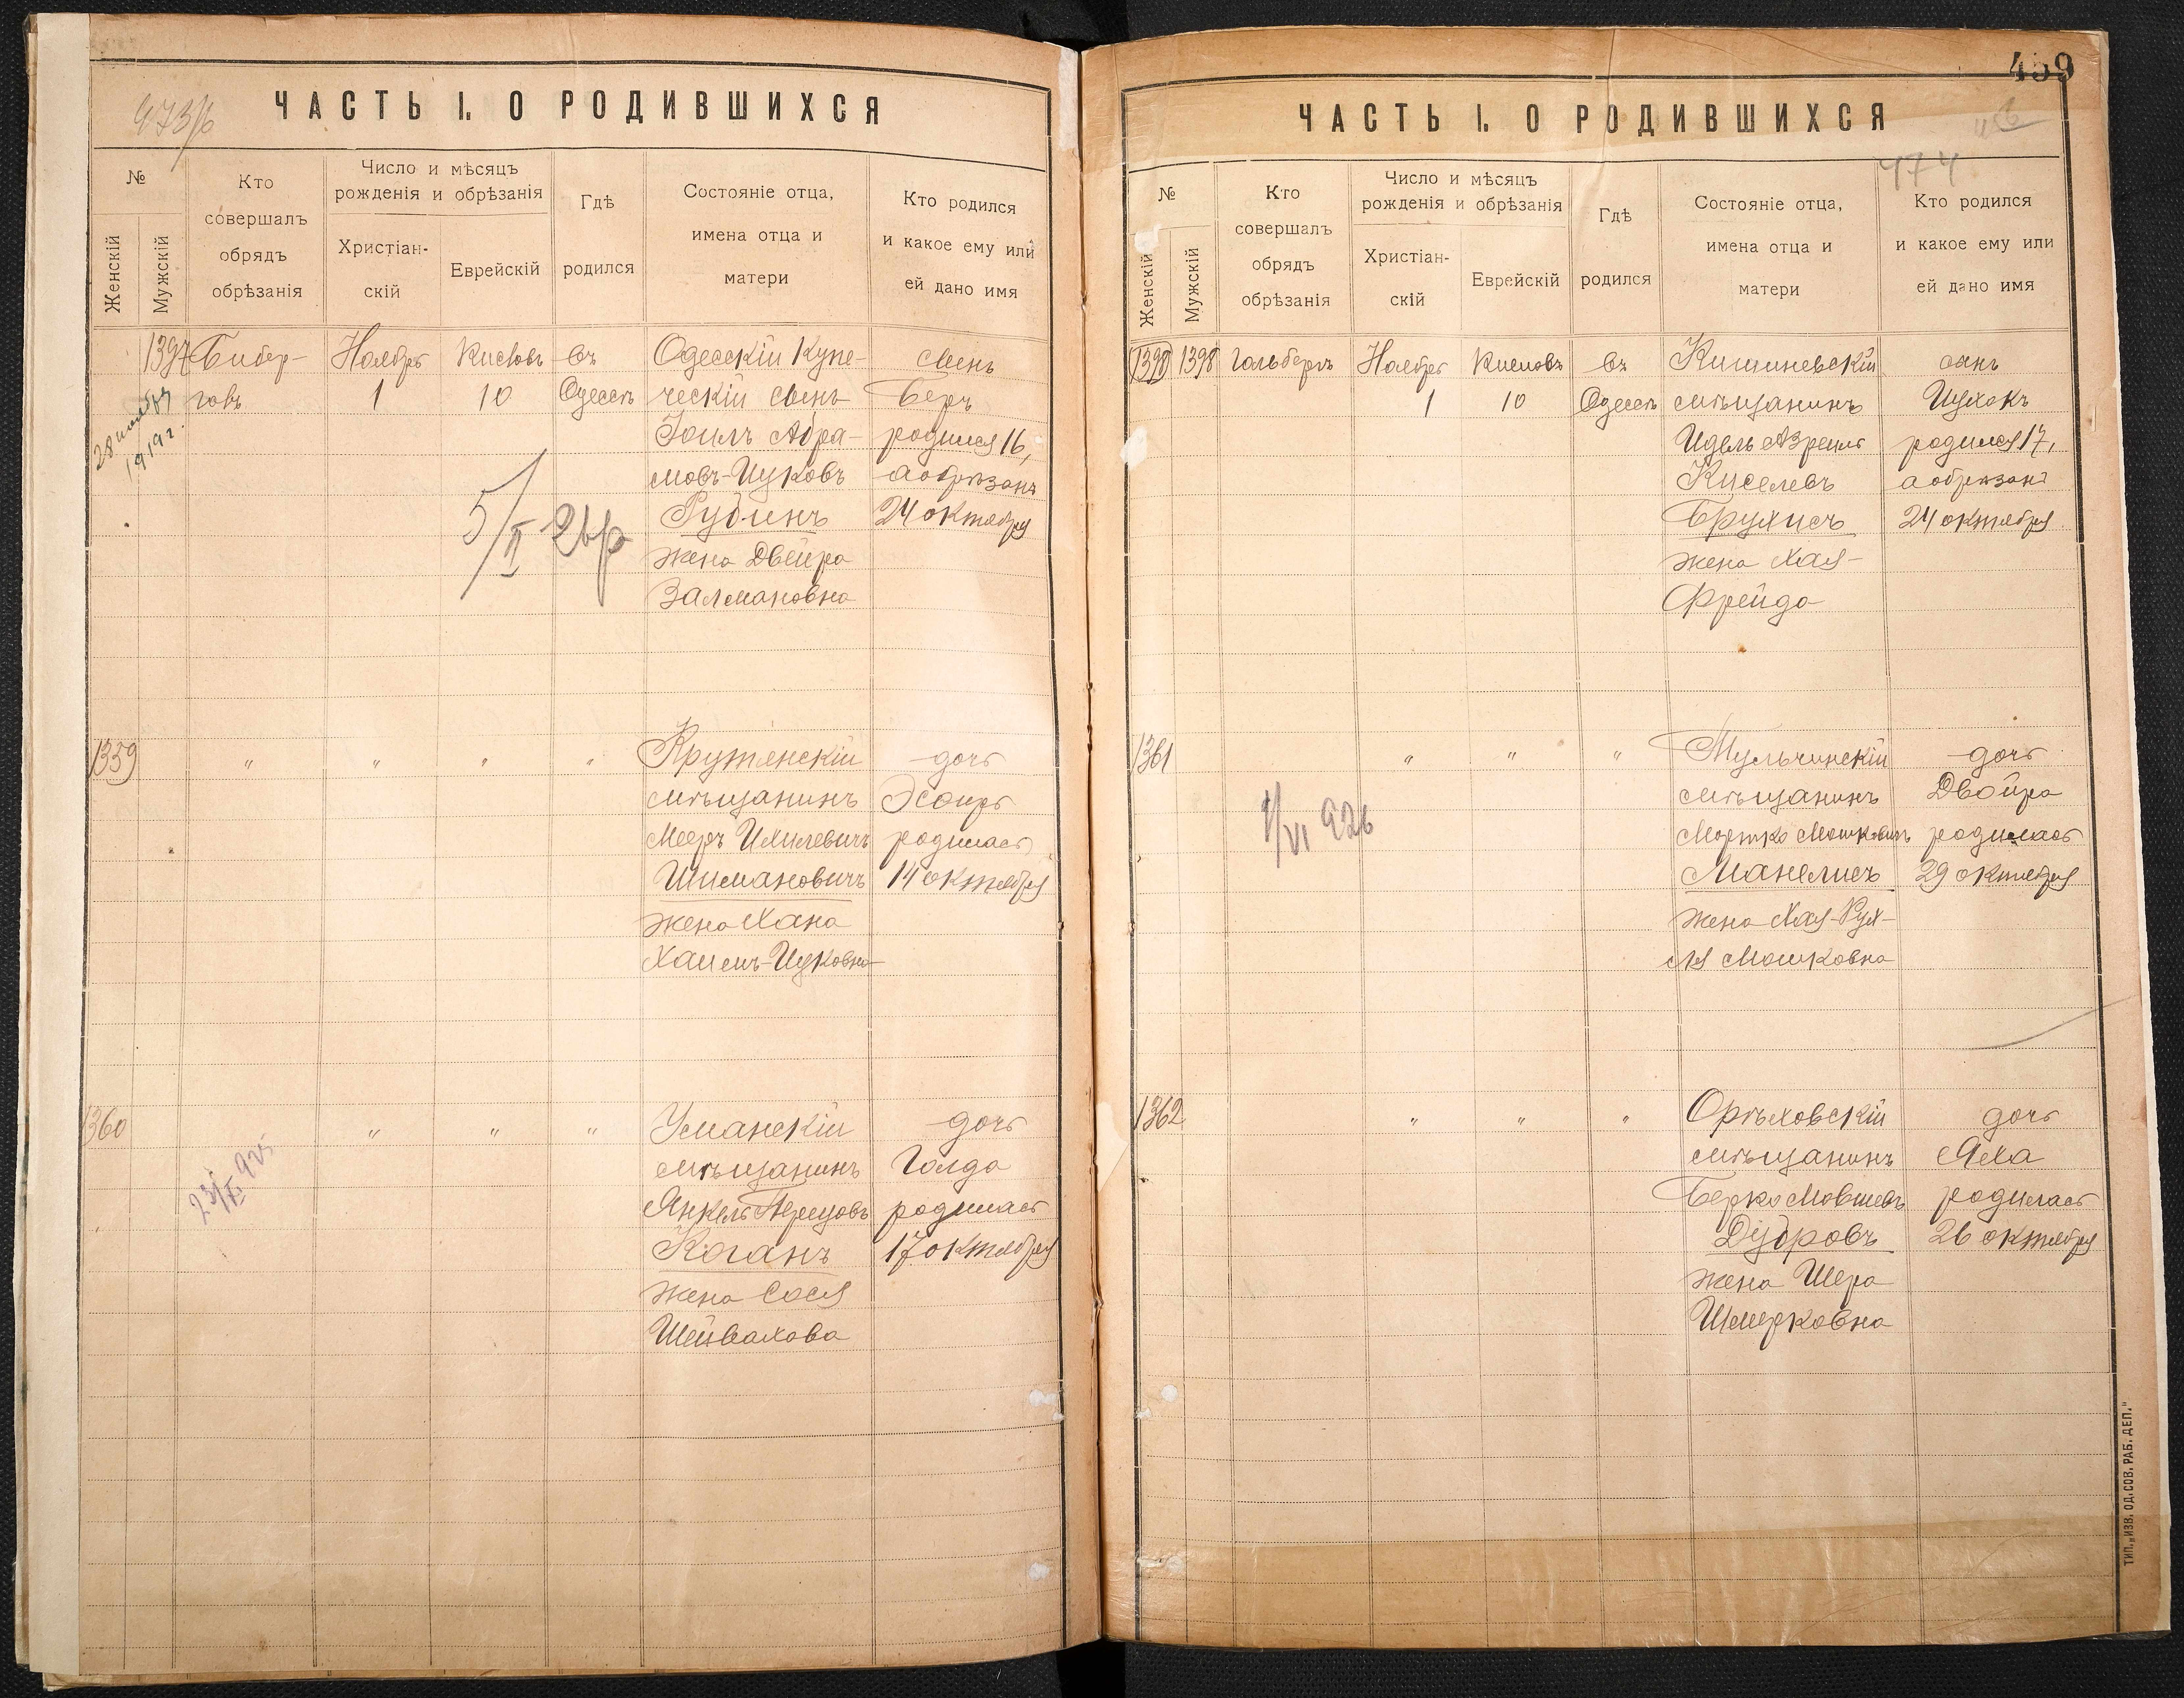 473/б
ЧАСТЬ I. О РОДИВШИХСЯ
№
Женскій
Мужскій
Кто
совершалъ
обрядъ
обрѣзанія
Число и мѣсяцъ
рожденія и обрѣзанія
Христіан-
скій
Еврейскій
Гдѣ
родился
Состояніе отца,
имена отца и
матери
Кто родился
и какое ему или
ей дано имя
1397 Бибер- Ноября Кислевъ въ Одесскій Купе- сынъ
говъ 1 10 Одессѣ ческій сынъ Беръ
28 ноября
1919 г.
Іоилъ Абра- родился 16,
мовъ-Ицковъ а обрѣзанъ
Рубинъ 24 октября
5/II 26
жена Двейра
Залмановна
1359 " " " " Крутянскій дочь
мѣщанинъ Эсѳирь
Мееръ Ихилевичъ родилась
Шимановичъ 14 октября
жена Хана
Хаимъ-Ицковна
1360 " " " Уманскій дочь
мѣщанинъ Голда
23/XI 925
Янкель Перецовъ родилась
Коганъ 17 октября
жена Сося
Шейвахова
459
ЧАСТЬ I. О РОДИВШИХСЯ
474
№
Женскій
Мужскій
Кто
совершалъ
обрядъ
обрѣзанія
Число и мѣсяцъ
рожденія и обрѣзанія
Христіан-
скій
Еврейскій
Гдѣ
родился
Состояніе отца,
имена отца и
матери
Кто родился
и какое ему или
ей дано имя
1398 1398 Гольбергъ Ноября Кислевъ въ Кишиневскій сынъ
1 10 Одессѣ мѣщанинъ Ицхокъ
Идель Азреилъ родился 17,
Киселевъ а обрѣзанъ
Брухисъ 24 октября
жена Хая-
Фрейда
1361 " " " Тульчинскій дочь
мѣщанинъ Двойра
1/VI 926
Мортко Мошковичъ родилась
Манелисъ 29 октября
жена Хая-Рух-
ля Мошковна
1362 " " " Орѣховскій дочь
мѣщанинъ Яха
Берко Мовшевъ родилась
Дубровъ 26 октября
жена Шера
Шмерковна
ТИП. „ИЗВ. ОД. СОВ. РАБ. ДЕП."